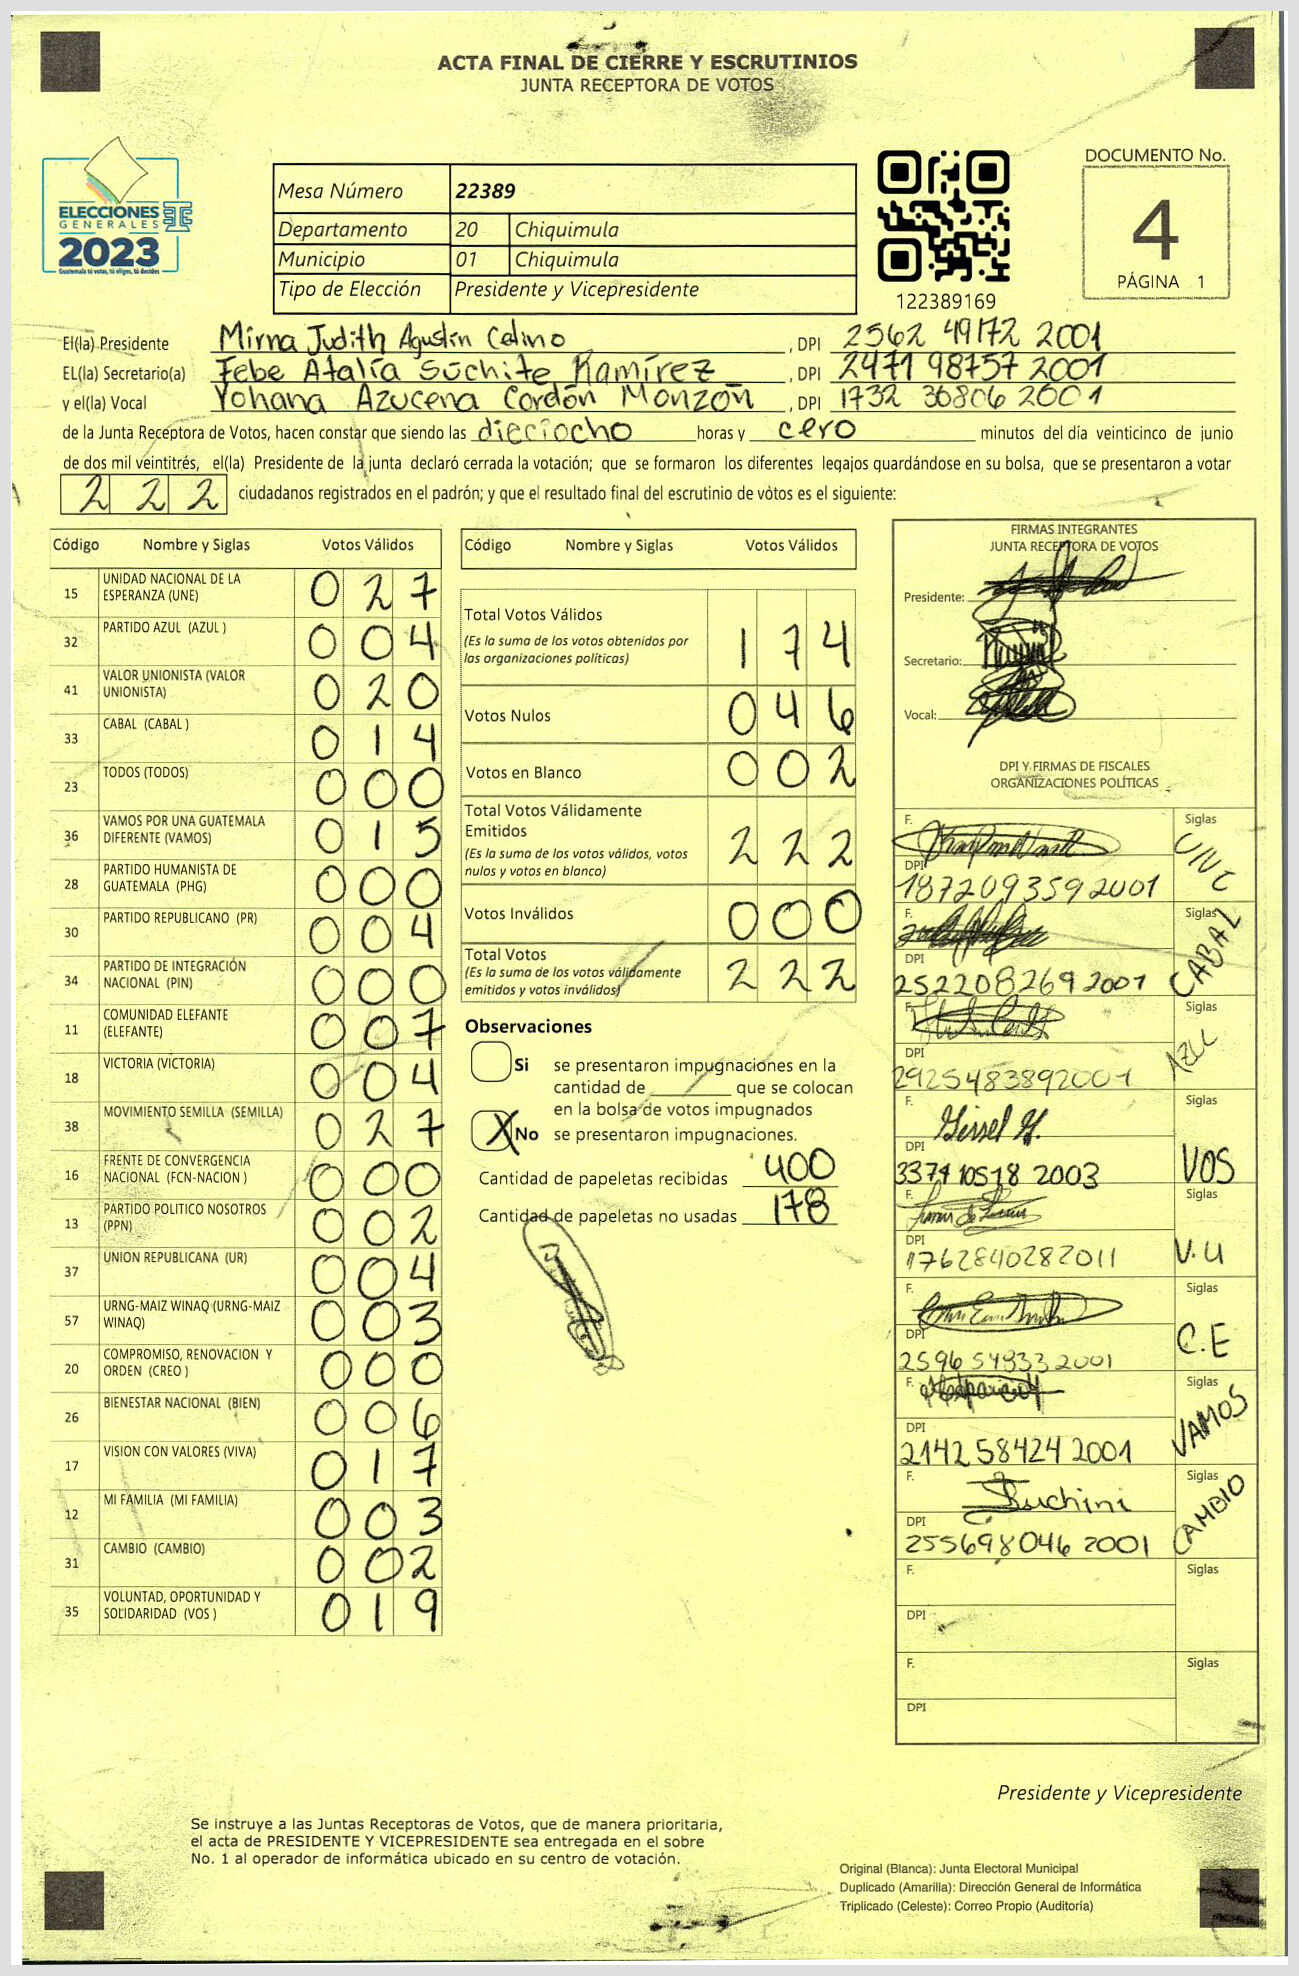 ACTA FINAL DE CIERRE Y ESCRUTINIOS
JUNTA RECEPTORA DE VOTOS
ELECCIONES
GENERALES
2023
Guatemala tú votas, tú eliges, tú decides
Mesa Número 22389
Departamento 20 Chiquimula
Municipio 01 Chiquimula
Tipo de Elección Presidente y Vicepresidente
122389169
DOCUMENTO No.
4
PÁGINA 1
El(la) Presidente Mirna Judith Agustín Celino, DPI 2562 49172 2001
EL(la) Secretario(a) Febe Atalía Súchite Ramírez, DPI 2471 98757 2001
y el(la) Vocal Yohana Azucena Cordón Monzón, DPI 1732 36806 2001
de la Junta Receptora de Votos, hacen constar que siendo las dieciocho horas y cero minutos del día veinticinco de junio
de dos mil veintitrés, el(la) Presidente de la junta declaró cerrada la votación; que se formaron los diferentes legajos guardándose en su bolsa, que se presentaron a votar
222 ciudadanos registrados en el padrón; y que el resultado final del escrutinio de votos es el siguiente:
Código Nombre y Siglas Votos Válidos
15 UNIDAD NACIONAL DE LA ESPERANZA (UNE) 027
32 PARTIDO AZUL (AZUL ) 004
41 VALOR UNIONISTA (VALOR UNIONISTA) 020
33 CABAL (CABAL ) 014
23 TODOS (TODOS) 000
36 VAMOS POR UNA GUATEMALA DIFERENTE (VAMOS) 015
28 PARTIDO HUMANISTA DE GUATEMALA (PHG) 000
30 PARTIDO REPUBLICANO (PR) 004
34 PARTIDO DE INTEGRACIÓN NACIONAL (PIN) 000
11 COMUNIDAD ELEFANTE (ELEFANTE) 007
18 VICTORIA (VICTORIA) 004
38 MOVIMIENTO SEMILLA (SEMILLA) 027
16 FRENTE DE CONVERGENCIA NACIONAL (FCN-NACION ) 000
13 PARTIDO POLITICO NOSOTROS (PPN) 002
37 UNION REPUBLICANA (UR) 004
57 URNG-MAIZ WINAQ (URNG-MAIZ WINAQ) 003
20 COMPROMISO, RENOVACION Y ORDEN (CREO ) 000
26 BIENESTAR NACIONAL (BIEN) 006
17 VISION CON VALORES (VIVA) 017
12 MI FAMILIA (MI FAMILIA) 003
31 CAMBIO (CAMBIO) 002
35 VOLUNTAD, OPORTUNIDAD Y SOLIDARIDAD (VOS ) 019
Código Nombre y Siglas Votos Válidos
Total Votos Válidos 174
(Es la suma de los votos obtenidos por
las organizaciones políticas)
Votos Nulos 046
Votos en Blanco 002
Total Votos Válidamente
Emitidos 222
(Es la suma de los votos válidos, votos
nulos y votos en blanco)
Votos Inválidos 000
Total Votos 222
(Es la suma de los votos válidamente
emitidos y votos inválidos)
Observaciones
Si se presentaron impugnaciones en la
cantidad de que se colocan
en la bolsa de votos impugnados
X No se presentaron impugnaciones.
Cantidad de papeletas recibidas 400
Cantidad de papeletas no usadas 178
FIRMAS INTEGRANTES
JUNTA RECEPTORA DE VOTOS
Presidente:
Secretario:
Vocal:
DPI Y FIRMAS DE FISCALES
ORGANIZACIONES POLÍTICAS
F. Siglas UNE
DPI
1872093592001
F. Siglas CABAL
DPI
252208269 2001
F. Siglas AZUL
DPI
2925483892001
F. Siglas VOS
DPI
3371 10518 2003
F. Siglas V.U
DPI
1762840282011
F. Siglas C.E
DPI
2596 54933 2001
F. Siglas VAMOS
DPI
2142 58424 2001
F. Suchini Siglas CAMBIO
DPI
255698046 2001
F. Siglas
DPI
F. Siglas
DPI
Presidente y Vicepresidente
Se instruye a las Juntas Receptoras de Votos, que de manera prioritaria,
el acta de PRESIDENTE Y VICEPRESIDENTE sea entregada en el sobre
No. 1 al operador de informática ubicado en su centro de votación.
Original (Blanca): Junta Electoral Municipal
Duplicado (Amarilla): Dirección General de Informática
Triplicado (Celeste): Correo Propio (Auditoría)